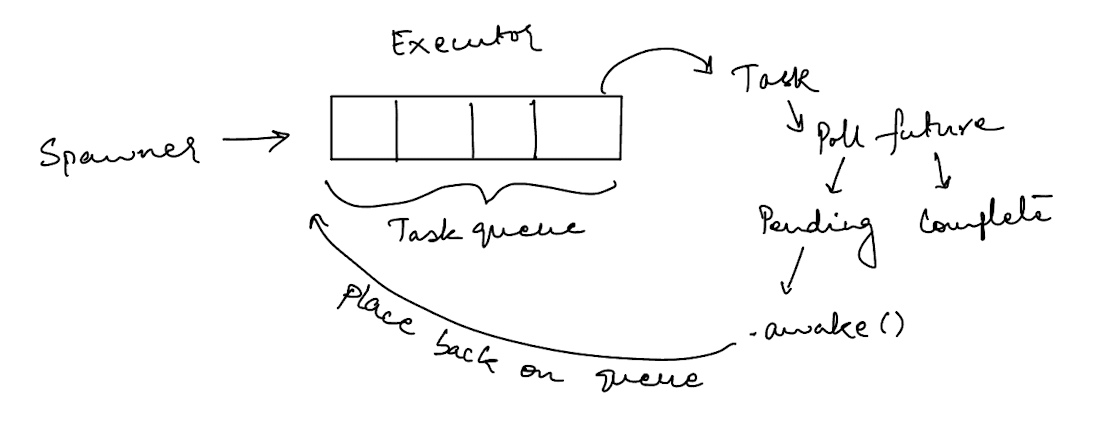 Executor
Spawner
Task queue
Task
Poll future
Pending
Complete
.awake()
Place back on queue